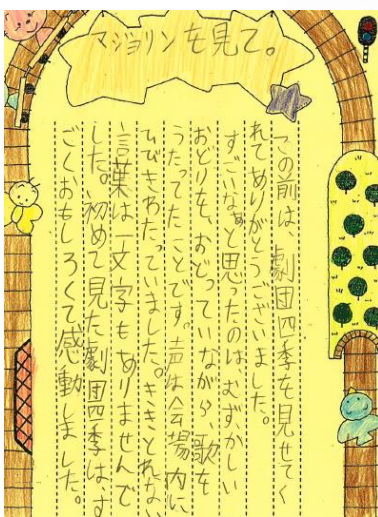 マジョリンを見て。
この前は、劇団四季を見せてく
れてありがとうございました。
すごいなぁと思ったのは、むずかしい
おどりを、おどっていながら、歌を
うたってたことです。声は会場内に
ひびきわたっていました。ききとれない
言葉は一文字もありませんで
した。初めて見た劇団四季はす
ごくおもしろくて感動しました。